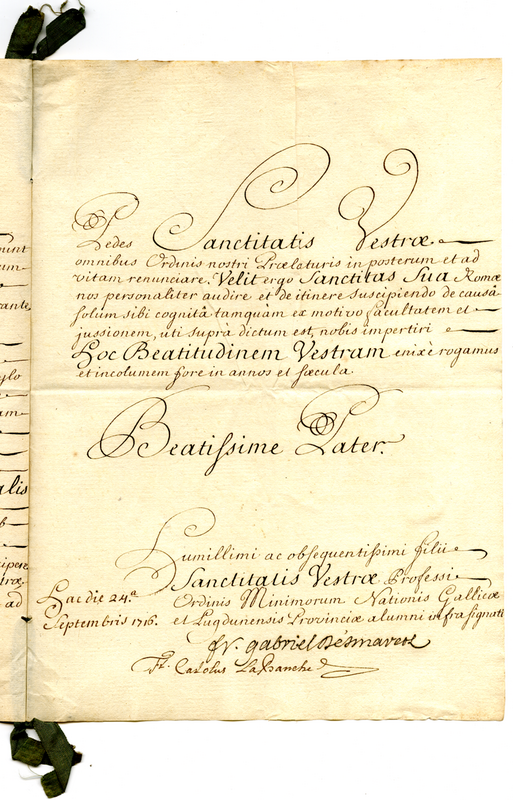 Pedes Sanctitatis Vestræ.
omnibus Ordinis nostri Prælaturis in posterum et ad
vitam renunciare. Velit ergo Sanctitas Sua Romæ
nos personaliter audire et de itinere suscipiendo de causâ
solum sibi cognitâ tamquam ex motivo facultatem et
jussionem, uti suprà dictum est, nobis impertiri
Hoc Beatitudinem Vestram enixè rogamus
et incolumem fore in annos et sæcula
Beatissime Pater.
Humillimi ac obsequentissimi filii
Sanctitatis Vestræ Professi
Ordinis Minimorum Nationis Gallicæ
et Lugdunensis Provinciæ alumni infrasignati
Hac die 24.ª
Septembris 1716.
fr. gabriel
fr. Carolus LaBanche